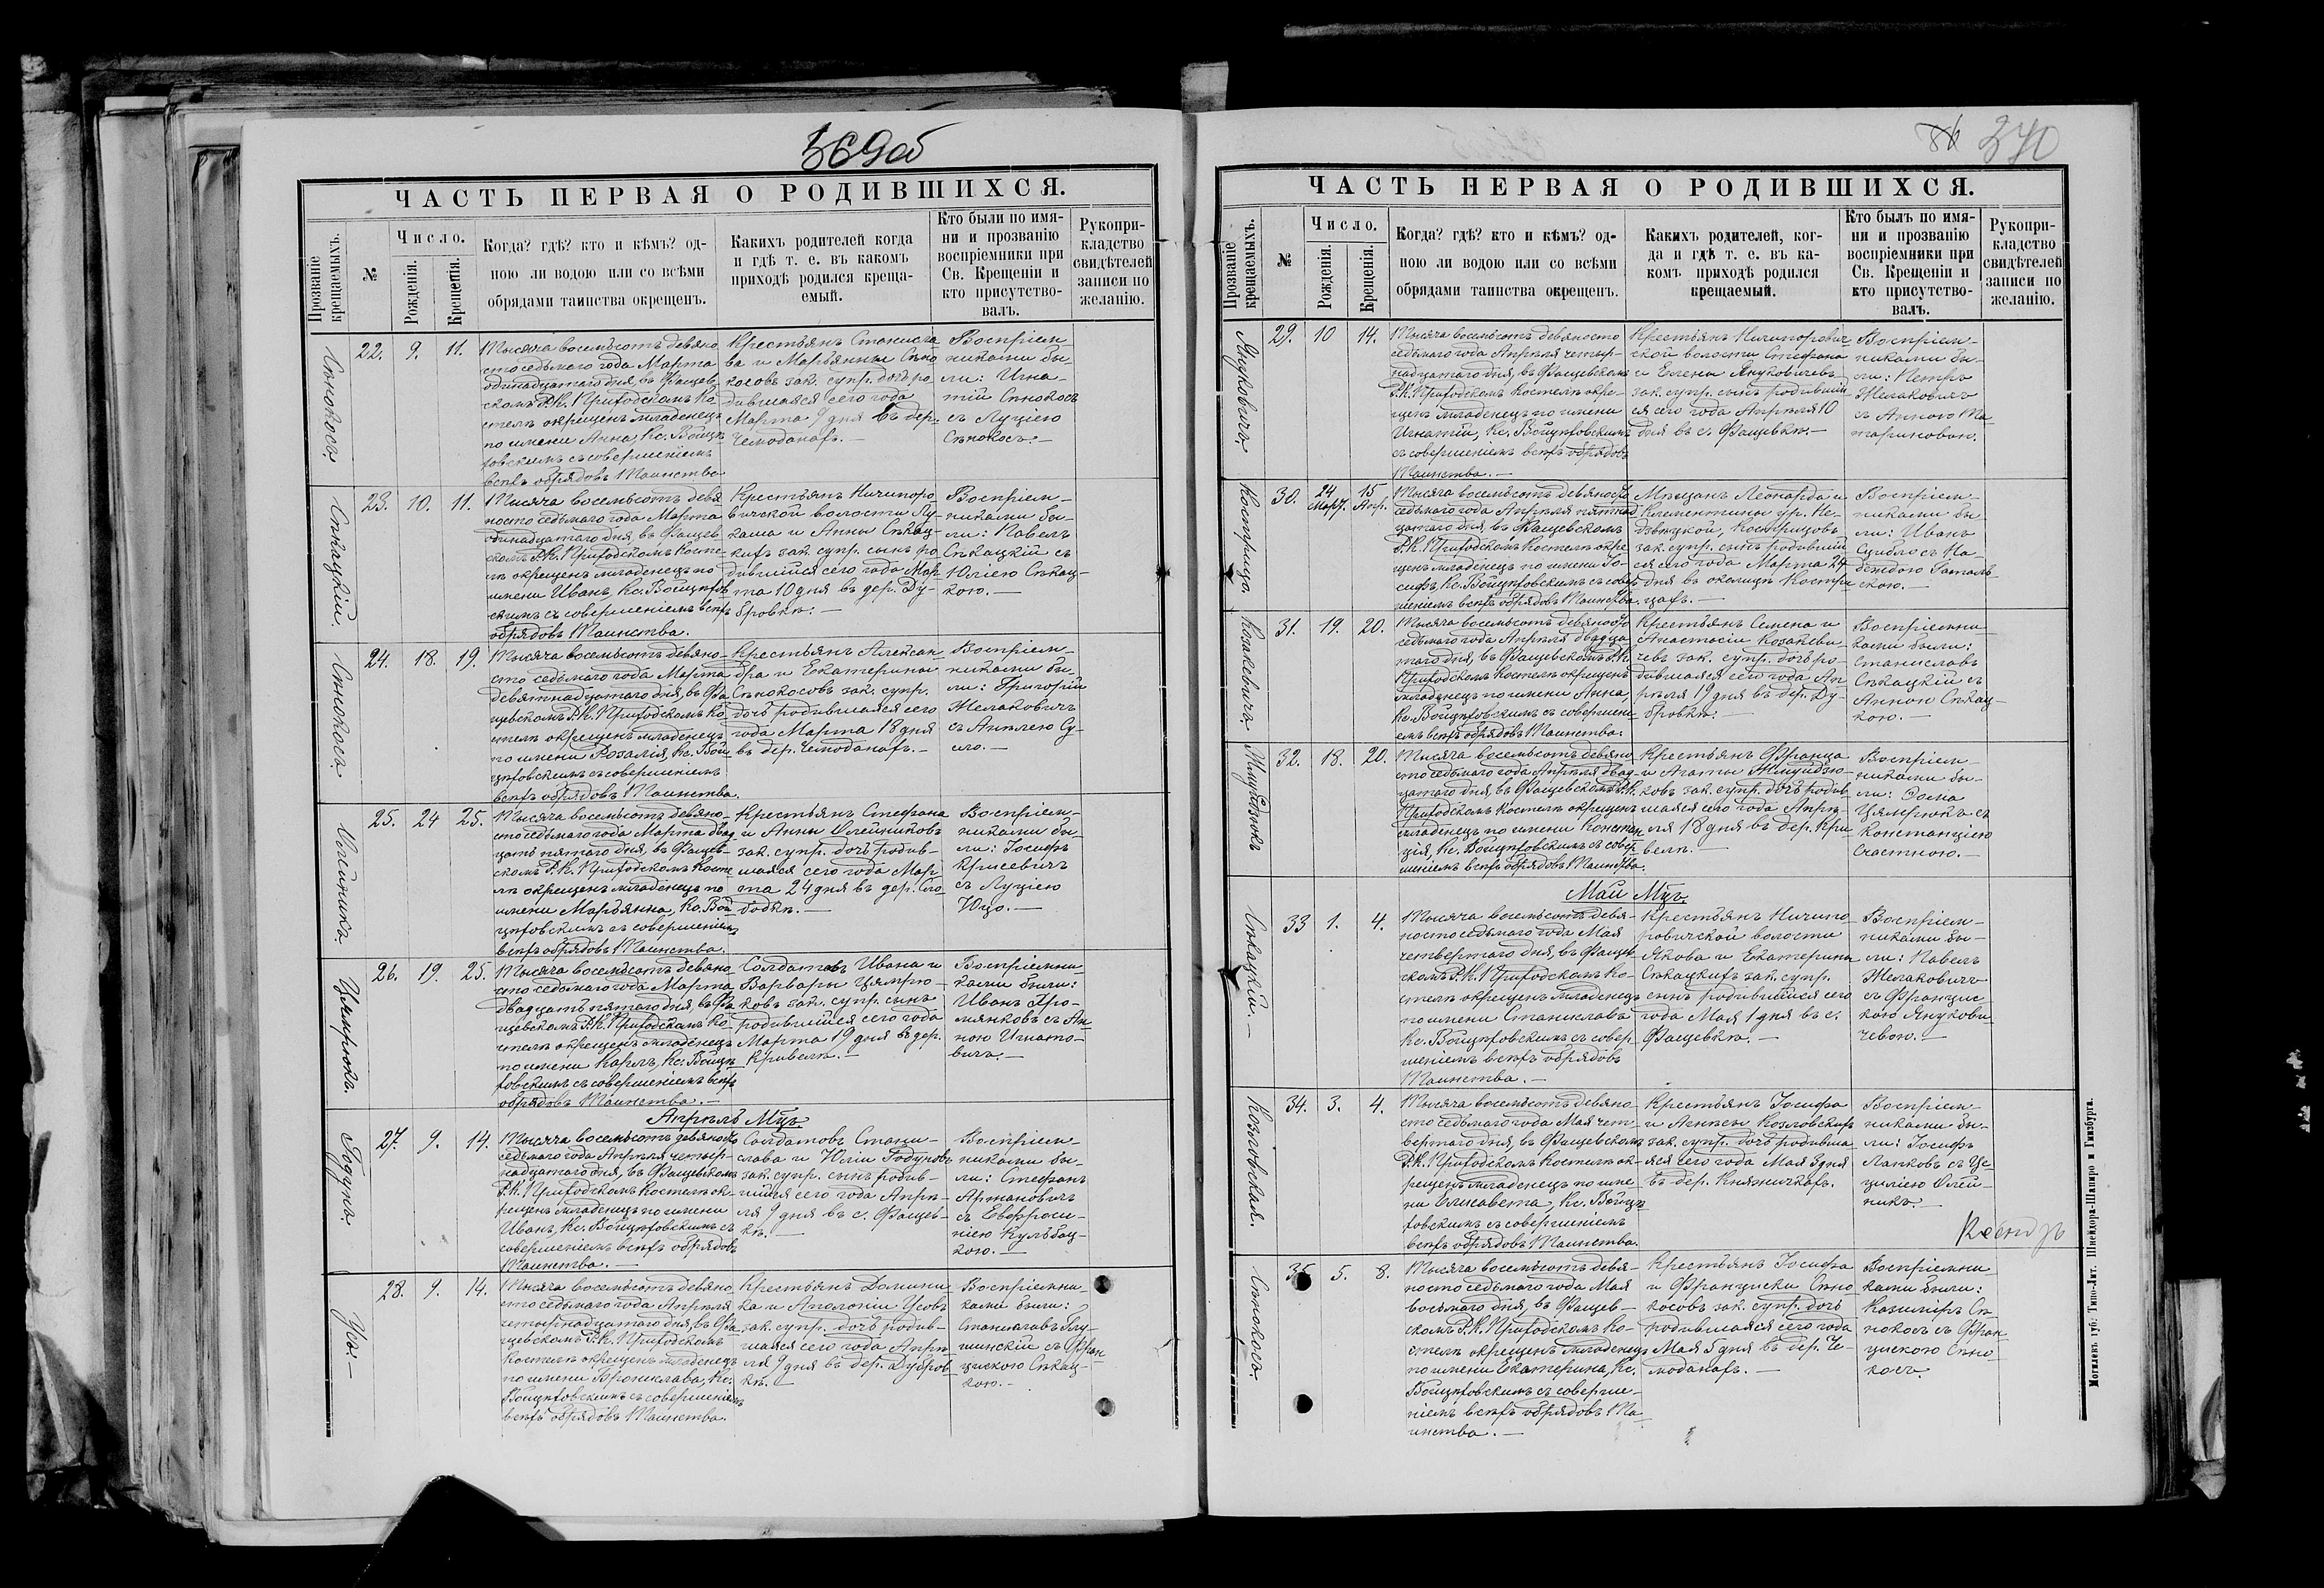 369об
ЧАСТЬ ПЕРВАЯ О РОДИВШИХСЯ.
Прозваніе крещаемыхъ.
№
Число.
Рожденія.
Крещенія.
Когда? гдѣ? кто и кѣмъ? од-
ною ли водою или со всѣми
обрядами таинства окрещенъ.
Какихъ родителей когда
и гдѣ т. е. въ какомъ
приходѣ родился креща-
емый.
Кто были по имя-
ни и прозванію
воспріемники при
Св. Крещеніи и
кто присутство-
валъ.
Рукопри-
кладство
свидѣтелей
записи по
желанію.
Сѣнокосъ.
22. 9. 11.
Тысяча восемьсотъ девяно
сто седьмаго года Марта
одинадцатаго дня, въ Фащев-
скомъ Р.К. Приходскомъ Ко
стелѣ окрещенъ младенецъ
по имени Анна, Кс. Войцѣ
ховскимъ съ совершеніемъ
всѣхъ обрядовъ Таинства
Крестьянъ Станисла
ва и Марьянны Сѣно
косовъ зак. супр. дочь ро
дившаяся сего года
Марта 9 дня въ дер.
Чемоданахъ. —
Воспріем-
никами бы-
ли: Игна-
тій Сѣнокосъ
съ Луціею
Сѣнокосъ. —
Сѣкацкій.
23. 10. 11.
Тысяча восемьсотъ девя
носто седьмаго года Марта
одинадцатаго дня, въ Фащев
скомъ Р.К. Приходскомъ Косте
лѣ окрещенъ младенецъ по
имени Иванъ, Кс. Войцѣхов
скимъ съ совершеніемъ всѣхъ
обрядовъ Таинства.
Крестьянъ Ничипоро
вичской волости Лу-
каша и Анны Сѣкац-
кихъ зак. супр. сынъ ро
дившійся сего года Мар
та 10 дня въ дер. Ду-
бровкѣ: —
Воспріем-
никами бы-
ли: Павелъ
Сѣкацкій съ
Юліею Сѣкац-
кою. —
Сѣнокосъ.
24. 18. 19.
Тысяча восемьсотъ девяно-
сто седьмаго года Марта
девятнадцатаго дня, въ Фа
щевскомъ Р.К. Приходскомъ Ко
стелѣ окрещенъ младенецъ
по имени Розалія, Кс. Вой
цѣховскимъ съ совершеніемъ
всѣхъ обрядовъ Таинства.
Крестьянъ Алексан-
дра и Екатерины
Сѣнокосовъ зак. супр.
дочь родившаяся сего
года Марта 18 дня
въ дер. Чемоданахъ. —
Воспріем-
никами бы-
ли: Григорій
Желаковичъ
съ Анѣлею Су-
сло. —
Олейникъ.
25. 24 25.
Тысяча восемьсотъ девяно-
сто седьмаго года Марта двад
цать пятаго дня, въ Фащев-
скомъ Р.К. Приходскомъ Косте
лѣ окрещенъ младенецъ по
имени Марьянна, Кс. Вой
цѣховскимъ съ совершеніемъ
всѣхъ обрядовъ Таинства.
Крестьянъ Стефана
и Анны Олейниковъ
зак. супр. дочь родив-
шаяся сего года Мар
та 24 дня въ дер. Сло
бодкѣ. —
Воспріем-
никами бы-
ли: Іосифъ
Крисевичъ
съ Луціею
Юцо. —
Цямрюкъ.
26. 19. 25.
Тысяча восемьсотъ девяно
сто седьмаго года Марта
двадцать пятаго дня, въ Фа
щевскомъ Р.К. Приходскомъ Ко
стелѣ окрещенъ младенецъ
по имени Карлъ, Кс. Войцѣ
ховскимъ съ совершеніемъ всѣхъ
обрядовъ Таинства. —
Солдатовъ Ивана и
Варвары Цямрю-
ковъ зак. супр. сынъ
родившійся сего года
Марта 19 дня въ дер.
Кривелѣ. —
Воспріемни
ками были:
Иванъ
съ Ан
ною Игнато-
вичъ. —
Апрѣль Мцъ.
Годунъ.
27. 9. 14.
Тысяча восемьсотъ девяносто
седьмаго года Апрѣля четыр-
надцатаго дня, въ Фащевскомъ
Р.К. Приходскомъ Костелѣ ок-
рещенъ младенецъ по имени
Иванъ, Кс. Войцѣховскимъ съ
совершеніемъ всѣхъ обрядовъ
Таинства. —
Солдатовъ Стани-
слава и Юліи Годуновъ
зак. супр. сынъ родив-
шійся сего года Апрѣ-
ля 9 дня въ с. Фащев-
кѣ. —
Воспріем-
никами бы-
ли: Стефанъ
Артановичъ
съ Евфроси-
ніею Кульбац-
кою. —
Усъ. —
28. 9. 14.
Тысяча восемьсотъ девяно
сто седьмаго года Апрѣля
четырнадцатаго дня, въ Фа
щевскомъ Р.К. Приходскомъ
Костелѣ окрещенъ младенецъ
по имени Брониславa, Кс.
Войцѣховскимъ съ совершеніемъ
всѣхъ обрядовъ Таинства.
Крестьянъ Домини
ка и Аполоніи Усовъ
зак. супр. дочь родив-
шаяся сего года Апрѣ
ля 9 дня въ дер. Дубров
кѣ. —
Воспріемни-
ками были:
Станиславъ Глу-
шинскій съ Фран
цискою Сѣкац-
кою. —
86 370
ЧАСТЬ ПЕРВАЯ О РОДИВШИХСЯ.
Прозваніе крещаемыхъ.
№
Число.
Рожденія.
Крещенія.
Когда? гдѣ? кто и кѣмъ? од-
ною ли водою или со всѣми
обрядами таинства окрещенъ.
Какихъ родителей, ког-
да и гдѣ т. е. въ ка-
комъ приходѣ родился
крещаемый.
Кто былъ по имя-
ни и прозванію
воспріемники при
Св. Крещеніи и
кто присутство-
валъ.
Рукопри-
кладство
свидѣтелей
записи по
желанію.
Януковичъ.
29. 10 14.
Тысяча восемьсотъ девяносто
седьмаго года Апрѣля четыр-
надцатаго дня, въ Фащевскомъ
Р.К. Приходскомъ Костелѣ окре-
щенъ младенецъ по имени
Игнатій, Кс. Войцѣховскимъ
съ совершеніемъ всѣхъ обрядовъ
Таинства. —
Крестьянъ Ничипорович
ской волости Стефана
и Елены Януковичевъ
зак. супр. сынъ родившій
ся сего года Апрѣля 10
дня въ с. Фащевкѣ. —
Воспріем-
никами бы-
ли: Петръ
Желаковичъ
съ Анною Та
тариновою.
Кострица.
30. 24 Март. 15 Апр.
Тысяча восемьсотъ девяносто
седьмаго года Апрѣля пятнад
цатаго дня, въ Фащевскомъ
Р.К. Приходскомъ Костелѣ окре
щенъ младенецъ по имени Іо-
сифъ, Кс. Войцѣховскимъ съ совер
шеніемъ всѣхъ обрядовъ Таинства.
Мѣщанъ Леонарда и
Клементины ур. Не-
дзвѣцкой, Кострицовъ
зак. супр. сынъ родивший
ся сего года Марта 24
дня въ околицѣ Костри
цахъ. —
Воспріем-
никами бы
ли: Иванъ
Сцибло съ На
деждою Гаталь-
скою. —
Козакевичъ.
31. 19. 20.
Тысяча восемьсотъ девяносто
седьмаго года Апрѣля двадца
таго дня, въ Фащевскомъ Р.К.
Приходскомъ Костелѣ окрещенъ
младенецъ по имени Анна,
Кс. Войцѣховскимъ съ совершені
емъ всѣхъ обрядовъ Таинства.
Крестьянъ Семена и
Анастасіи Козакеви-
чевъ зак. супр. дочь ро-
дившаяся сего года Ап-
рѣля 19 дня въ дер. Ду-
бровкѣ: —
Воспріемни
ками были:
Станиславъ
Сѣкацкій съ
Анною Сѣкац-
кою. —
Жмуйдзюкъ
32. 18. 20.
Тысяча восемьсотъ девяно
сто седьмаго года Апрѣля двад-
цатаго дня, въ Фащевскомъ Р.К.
Приходскомъ Костелѣ окрещенъ
младенецъ по имени Констан
ція, Кс. Войцѣховскимъ съ совер
шеніемъ всѣхъ обрядовъ Таинства.
Крестьянъ Франца
и Агаты Жмуйдзю-
ковъ зак. супр. дочь родив
шаяся сего года Апрѣ-
ля 18 дня въ дер. Кри
велѣ. —
Воспріем-
никами бы-
ли: Фома
Цямрюкъ съ
Констанціею
Счастною. —
Май Мцъ.
Сѣкацкій. —
33 1. 4.
Тысяча восемьсотъ девя-
носто седьмаго года Мая
четвертаго дня, въ Фащев
скомъ Р.К. Приходскомъ Ко-
стелѣ окрещенъ младенецъ
по имени Станиславъ
Кс. Войцѣховскимъ съ совер-
шеніемъ всѣхъ обрядовъ
Таинства. —
Крестьянъ Ничипо
ровичской волости
Якова и Екатерины
Сѣкацкихъ зак. супр.
сынъ родившійся сего
года Мая 1 дня въ с.
Фащевкѣ. —
Воспріем-
никами бы-
ли: Павелъ
Желаковичъ
съ Францис-
кою Янукови
чевою. —
Козловская.
34. 3. 4.
Тысяча восемьсотъ девяно-
сто седьмаго года Мая чет
вертаго дня, въ Фащевскомъ
Р.К. Приходскомъ Костелѣ ок-
рещенъ младенецъ по име-
ни Елисавета, Кс. Войцѣ
ховскимъ съ совершеніемъ
всѣхъ обрядовъ Таинства.
Крестьянъ Іосифа
и Агнесы Козловскихъ
зак. супр. дочь родивша
яся сего года Мая 3 дня
въ дер. Княжичкахъ.
Воспріем-
никами бы-
ли: Іосифъ
Лапковъ съ Це-
циліею Олей-
никъ. —
Сѣнокосъ.
35 5. 8.
Тысяча восемьсотъ девя-
носто седьмаго года Мая
восьмаго дня, въ Фащев-
скомъ Р.К. Приходскомъ Ко-
стелѣ окрещенъ младенецъ
по имени Екатерина, Кс.
Войцѣховскимъ съ соверше-
ніемъ всѣхъ обрядовъ Та
инства. —
Крестьянъ Іосифа
и Франциски Сѣно
косовъ зак. супр. дочь
родившаяся сего года
Мая 5 дня въ дер. Че-
моданахъ. —
Воспріемни
ками были:
Казиміръ Сѣ
нокосъ съ Фран
цискою Сѣно-
косъ.
Могилевъ губ. Типо-Лит. Шнейкора-Шапиро и Гинзбурга.